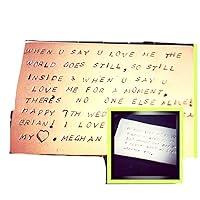 WHEN U SAY U LOVE ME THE
WORLD GOES STILL, SO STILL
INSIDE & WHEN U SAY U
LOVE ME FOR A MOMENT,
THERE'S NO ONE ELSE ALIVE!
HAPPY 7TH WED
BRIAN! I LOVE
MY ♡. MEGHAN